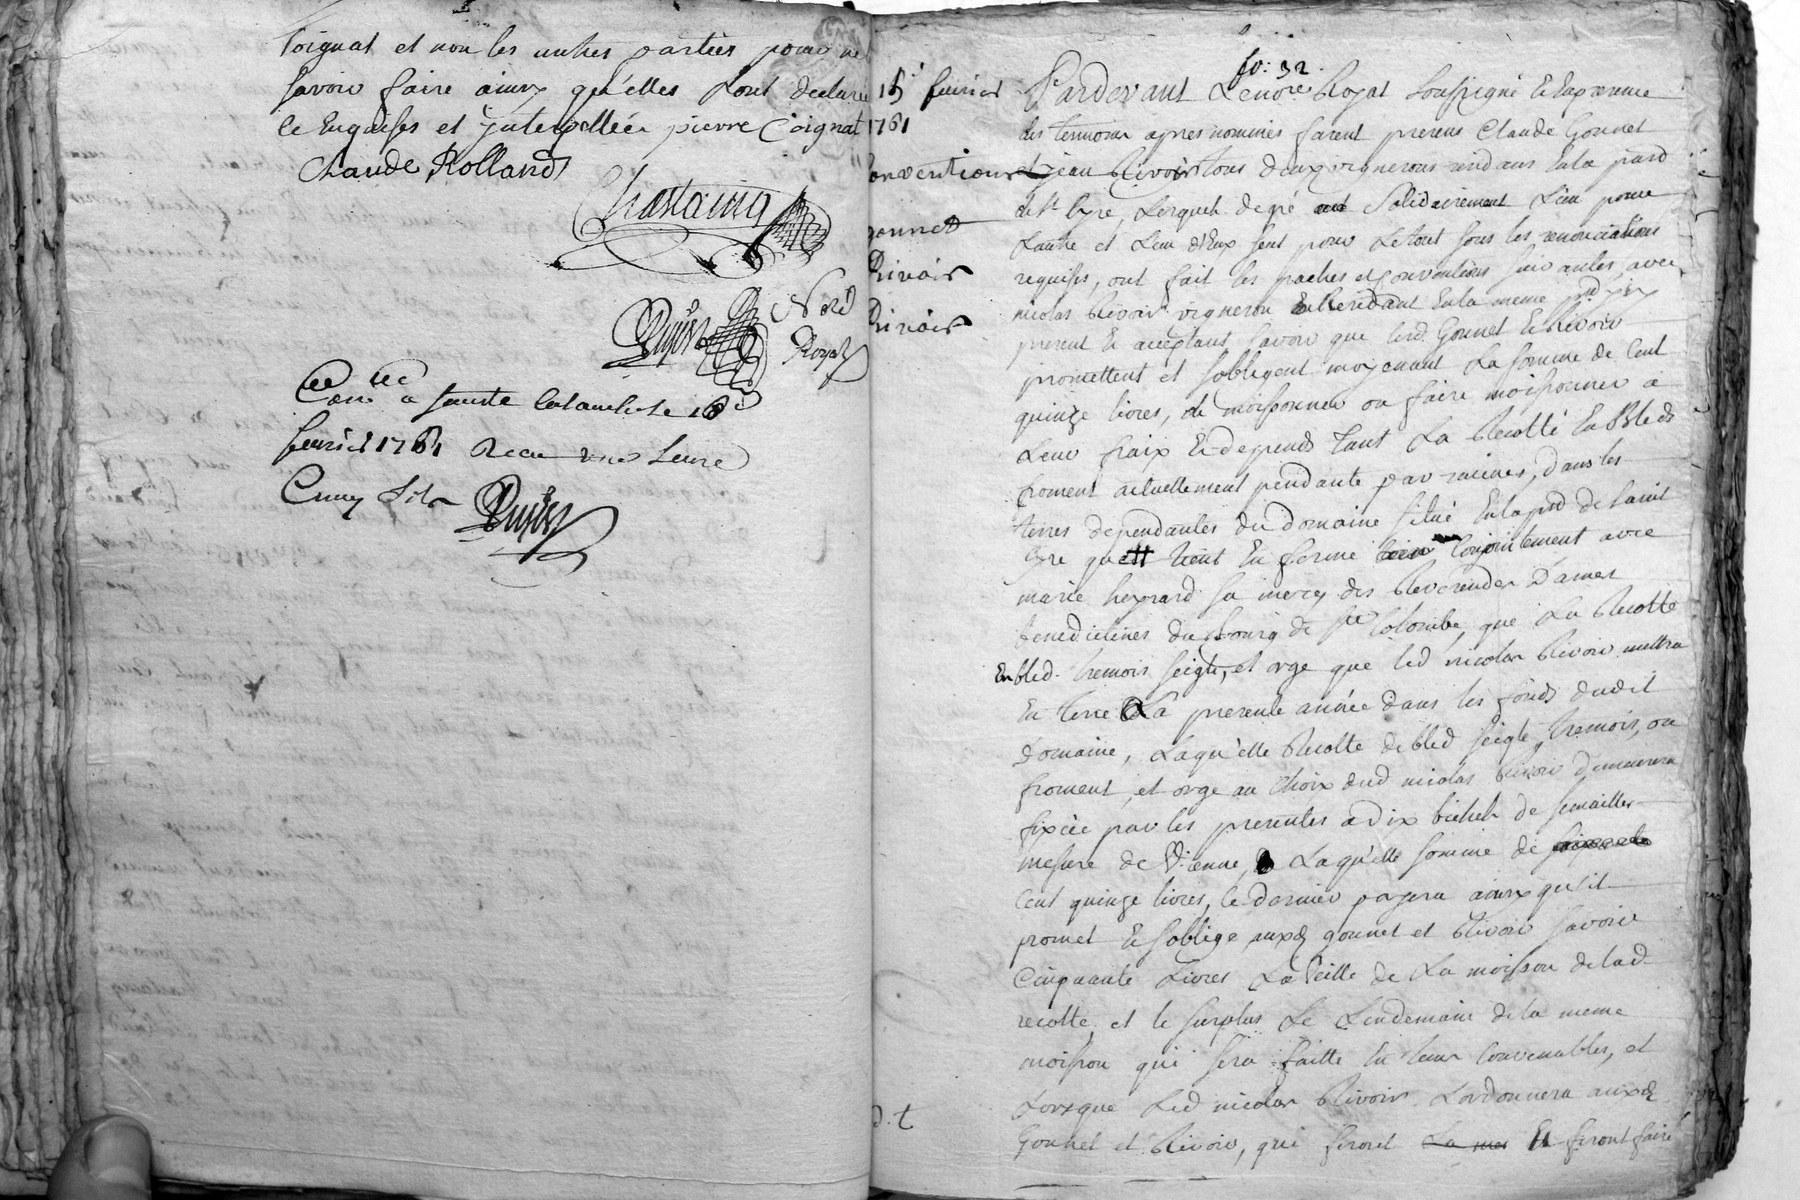 Coignat et non les autres parties pour ne
savoir faire ainsy qu'elles l'ont declaré
de Enquises et Interpellées pierre Coignat
Claude Rolland
Chastaing
Dupuis Nore
Royal
Con a sainte Colombe le 16e
fevrier 1761 Recu une Livre
Cinq sols
Dupuis
fo: 32.
15 fevrier
1761
Conventions
gonnet
Rivoir
Rivoir
Pardevant Lenore Royal soussigné Et Enpresence
des temoins apres nommés furent presens Claude Gonnet
et jean Rivoir tous deux vignerons residans En la parr
de St Cyre, Lesquels de gré et solidairement L'un pour
L'autre et L'un d'Eux seul pour Letout sous les renonciations
requises, ont fait les paches et Conventions suivantes avec
nicolas Rivoir vigneron Resident En la meme
present Et acceptant savoir que lesd. Gonnet Et Rivoir
promettent et sobligent moyenant La somme de Cent
quinze livres, de moissonner ou faire moissonner a
Leur fraix Et depends tant La Recolte En Bleds
froment actuellement pendante par racines, dans les
terres dependantes du domaine situé En la prd de saint
Cyre quil tient En ferme Conjointement avec
marie heyrard sa mere des Reverendes Dames
benedictines du Bourg de Ste Colombe, que La Recolte
En bled tremois seigle, et orge que led nicolas Rivoir mettra
En terre La presente année dans les fonds dudit
domaine, Laquelle Recolte de bled seigle, tremois, ou
froment, et orge au Choix dud nicolas Rivoir demeurera
fixée par les presentes a dix bichets de semailles
mesure de Vienne, Laquelle somme de
Cent quinze livres, le dernier payera ainsy qu'il
promet Et soblige auxd gonnet et Rivoir savoir
Cinquante Livres La Veille de La moisson de lad
recolte, et le surplus Le Lendemain de la meme
moisson qui sera faitte En tems Convenables, et
Lorsque Led nicolas Rivoir L'ordonnera auxd.
Gonnet et Rivoir, qui feront Et feront faire
d. t